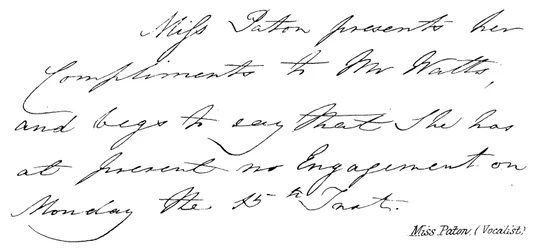 Miss Paton presents her
Compliments to Mr Watts,
and begs to say that She has
at present no Engagement on
Monday the 15th Inst.
Miss Paton, (Vocalist)